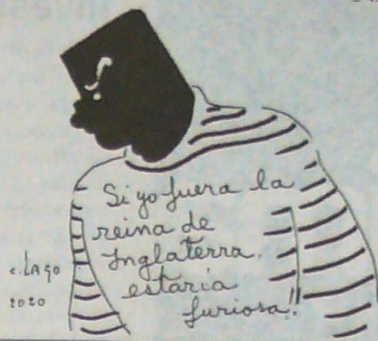 Si yo fuera la
reina de
Inglaterra,
estaría
furiosa!!
c. LAGO
2020